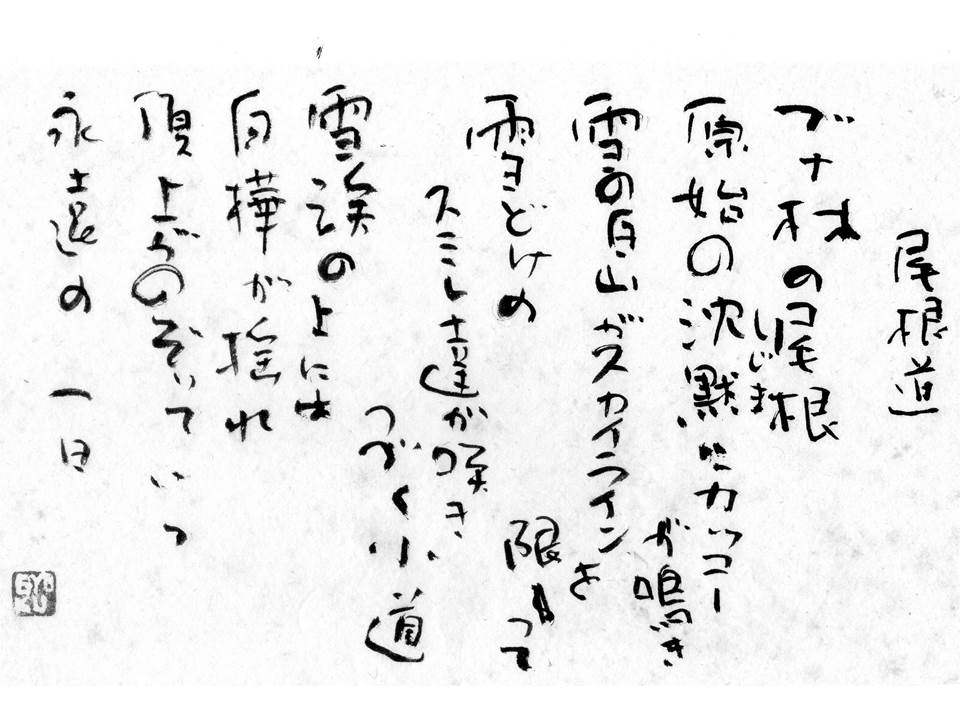 尾根道
ブナ林の尾根
原始の沈黙にカッコー
が鳴き
雪の白山がスカイライン
を
限って
雪どけの
スミレ達が咲き
つづく小道
雪渓の上には
白樺が揺れ
頂上がのぞいている
永遠の一日